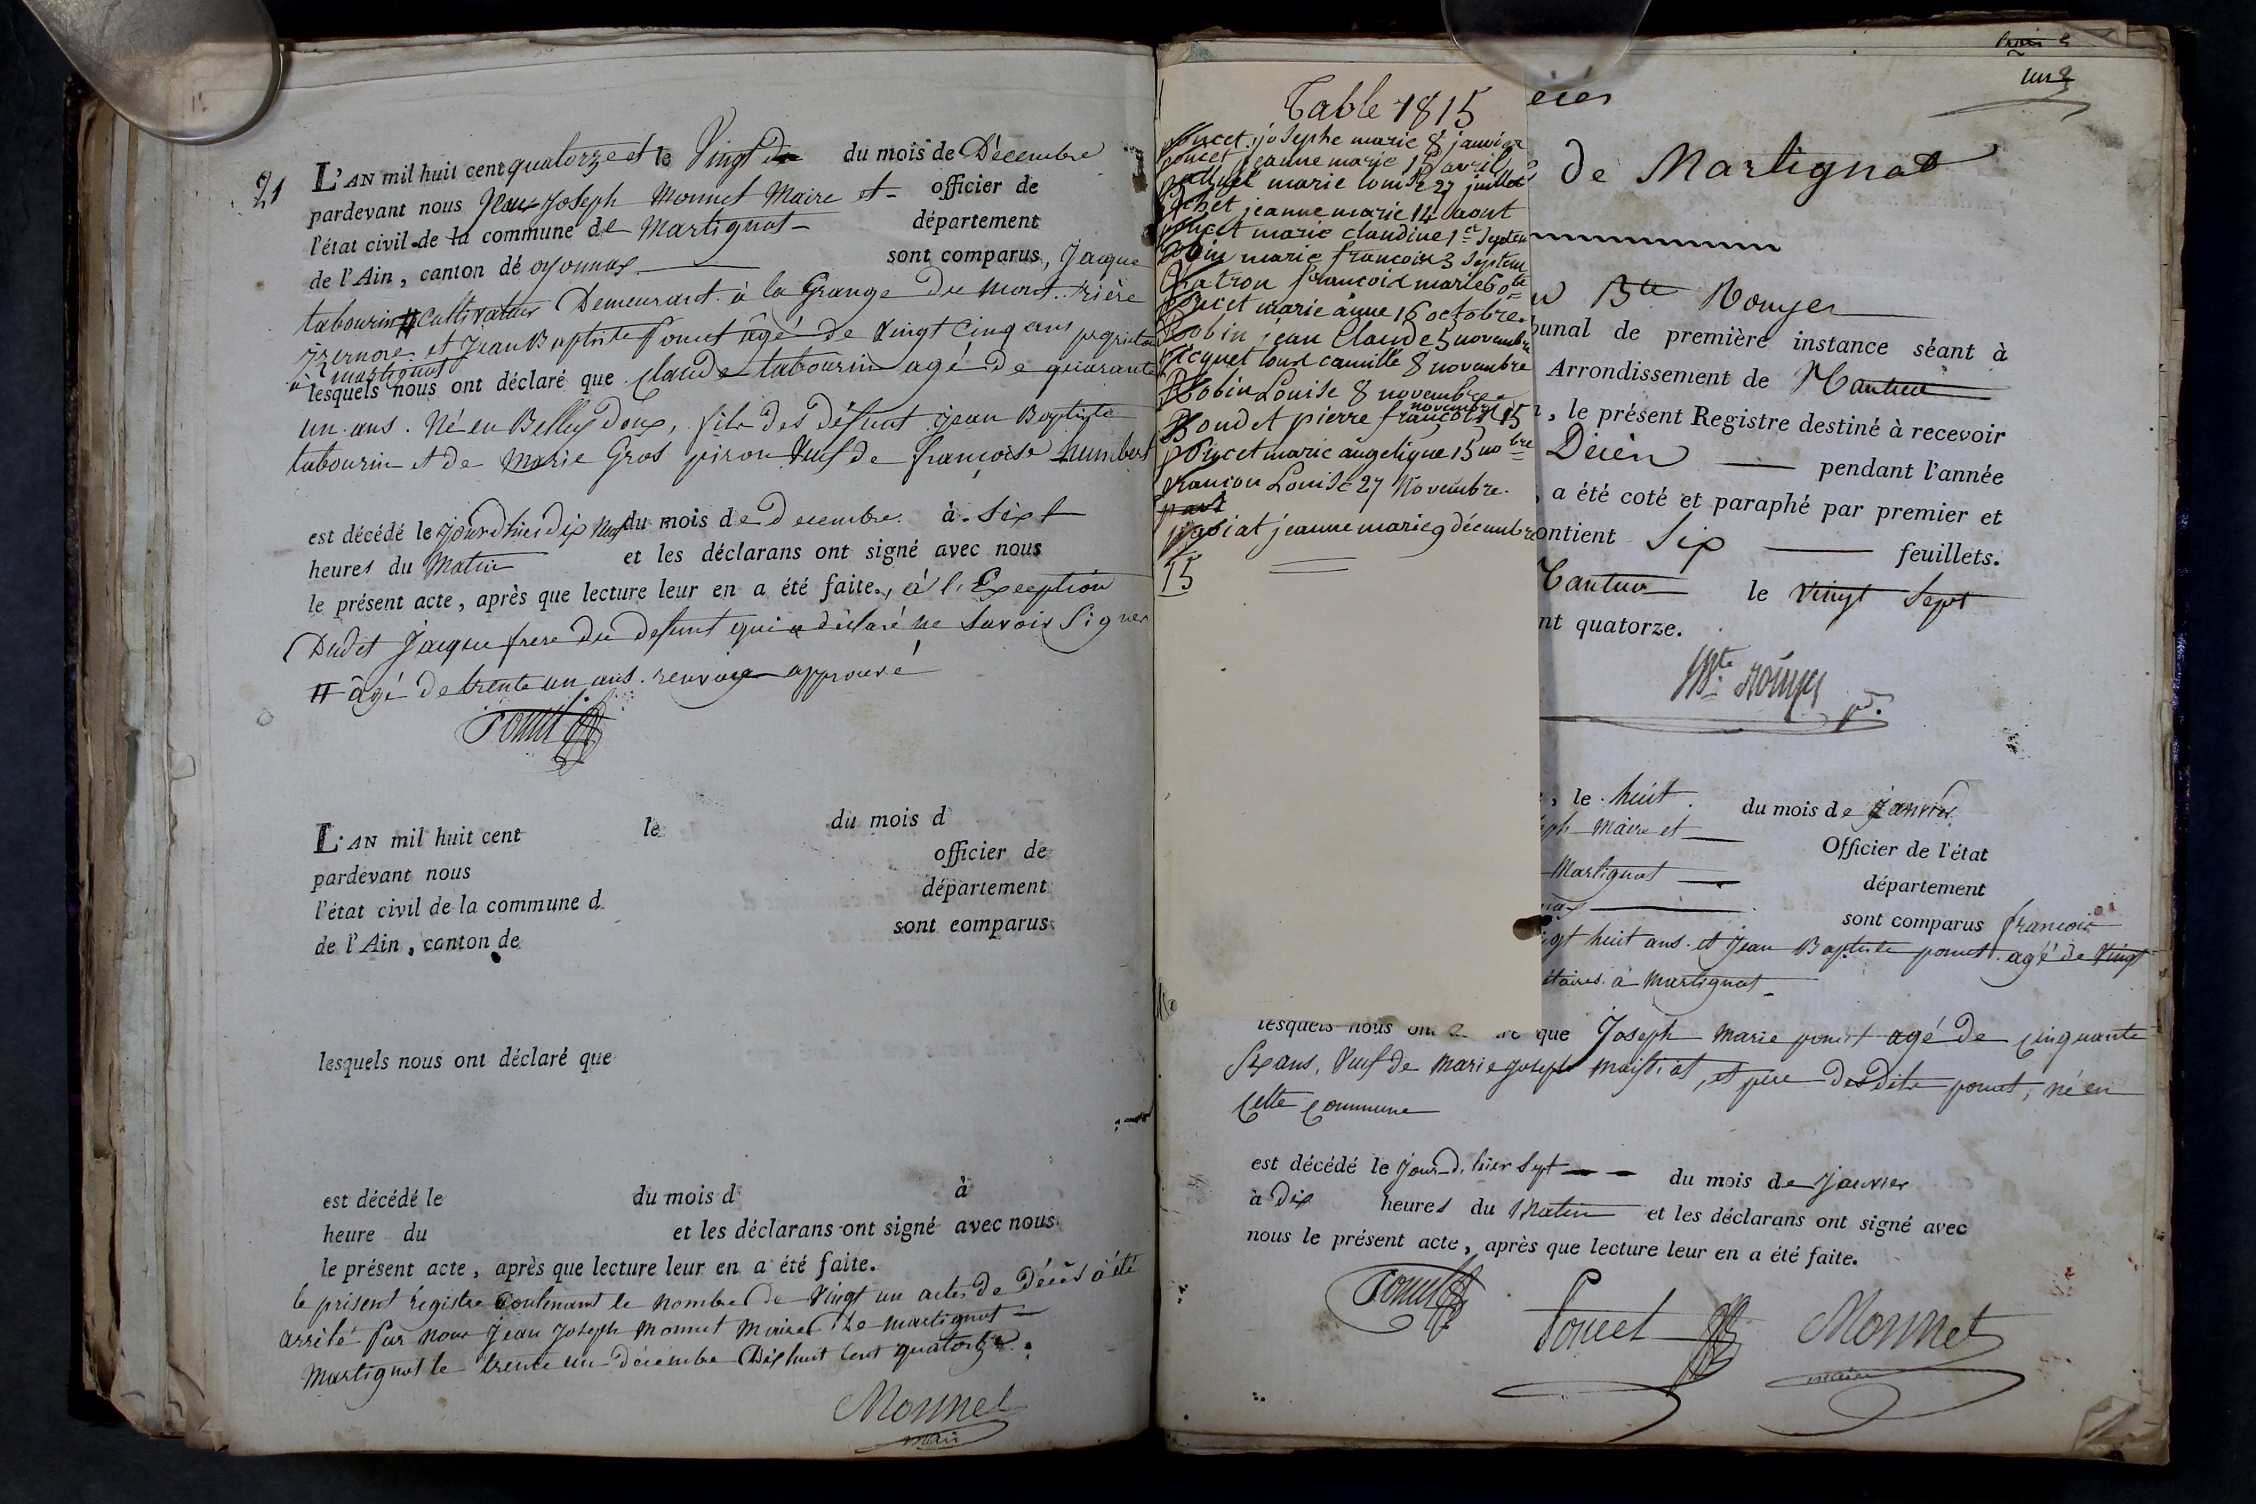 21
L'AN mil huit cent quatorze et le Vingt du mois de Décembre
pardevant nous Jean Joseph Monnet Maire et officier de
l'état civil de la commune de Martignat département
de l'Ain, canton de oyonnax sont comparus, Jacque
tabourin # Cultivateur Demeurant à la Grange du mont rière
izernore et Jean Baptiste Poncet âgé de Vingt Cinq ans propriétaire
à martignat
lesquels nous ont déclaré que Claude tabourin agé de quarante
un ans. Né en Belley doux, fils des défunt Jean Baptiste
tabourin et de Marie Gros piron Veuf de françoise humbert
est décédé le jourdhier dix neuf du mois de Decembre à Sept
heures du Matin et les déclarans ont signé avec nous
le présent acte, après que lecture leur en a été faite, à l'Exception
Dudit Jacque frere du defunt qui a déclaré ne Savoir Signer
# âgé de trente un ans renvoie approuvé
Poncet
L'AN mil huit cent le du mois d
pardevant nous officier de
l'état civil de la commune d département
de l'Ain, canton de sont comparus
lesquels nous ont déclaré que
est décédé le du mois d à
heure du et les déclarans ont signé avec nous
le présent acte, après que lecture leur en a été faite.
le présent registre Contenant le nombre de Vingt un actes de Décès a été
arrêté par nous Jean Joseph Monnet Maire de martignat
Martignat le trente un décembre Dix huit Cent quatorze.
Monnet
maire
Table 1815
poncet josephe marie 8 janvier
poncet jeanne marie 15 avril
marie louise 27 juillet
jeanne marie 14 aout
poncet marie claudine 1er Septem
marie francoise 3 Septem
francois marie 6 8bre
poncet marie anne 16 octobre
Robin jean Claude 5 novembre
picquet louis camille 8 novembre
Robin Louise 8 novembre
novembre
Bondet pierre francois 15
poncet marie angelique 15 nobre
francon Louise 27 Novembre.
jeanne marie 9 décembre
15
trois
un
de Martignat
Bte Rouyer
bunal de première instance séant à
Arrondissement de Nantua
, le présent Registre destiné à recevoir
Décès pendant l'année
, a été coté et paraphé par premier et
ontient Six feuillets.
Nantua le Vingt Sept
nt quatorze.
Bte Rouyer
, le huit du mois de janvier
eph Maire et Officier de l'état
Martignat département
nax sont comparus francois
ingt huit ans et Jean Baptiste poncet agé de Vingt
étaires à Martignat
lesquels nous ont que Joseph Marie poncet agé de Cinquante
Six ans, Veuf de Marie joseph Maissiat, et père desdits poncet, né en
Cette Commune
est décédé le jour d'hier Sept du mois de janvier
à Dix heures du Matin et les déclarans ont signé avec
nous le présent acte, après que lecture leur en a été faite.
Poncet Poncet Monnet
maire